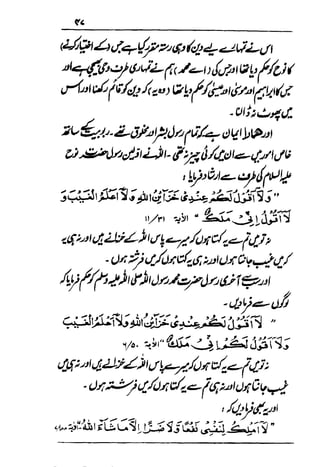 ۴۷
اس نے تمہارے لیے دین کا وہی رستہ مقرر کیا ہے جس (کے اختیار کرنے)
کا نوح کو حکم دیا تھا اور جس کی (اے محمد) ہم نے تمہاری طرف وحی بھیجی ہے اور
جس کا ابراہیم اور موسیٰ اور عیسیٰ کو حکم دیا تھا (وہ یہ) کہ دین کو قائم رکھنا اور اس
میں پھوٹ نہ ڈالنا۔
اور ہمارا ایمان ہے کہ تمام رسول بشر اور مخلوق تھے۔ ربوبیت کے ساتھ
خاص امور میں سے ان میں کوئی چیز نہ تھی۔ اللہ نے اولین رسول حضرت نوح
علیہ السلام کی طرف سے ارشاد فرمایا:
"وَلَآ اَقُوْلُ لَكُمْ عِنْدِىْ خَزَآئِنُ اللهِ وَلَآ اَعْلَمُ الْغَيْبَ وَ
لَآ اَقُوْلُ اِنِّىْ مَلَكٌ" الآية ۱۱/۳۱
نہ تو میں تم سے یہ کہتا ہوں کہ میرے پاس اللہ کے خزانے ہیں اور نہ ہی یہ
کہ میں غیب جانتا ہوں اور نہ ہی یہ کہتا ہوں کہ میں فرشتہ ہوں۔
اور سب سے آخری رسول حضرت محمد رسول اللہ صلی اللہ علیہ وسلم کو حکم فرمایا کہ
لوگوں سے فرما دیں۔
لَآ اَقُوْلُ لَكُمْ عِنْدِىْ خَزَآئِنُ اللهِ وَلَآ اَعْلَمُ الْغَيْبَ
وَلَآ اَقُوْلُ لَكُمْ اِنِّىْ مَلَكٌ" الآية ۶/۵۰
نہ تو میں تم سے یہ کہتا ہوں کہ میرے پاس اللہ کے خزانے ہیں اور نہ ہی میں
غیب جانتا ہوں اور نہ ہی تم سے یہ کہتا ہوں کہ میں فرشتہ ہوں۔
اور یہ بھی فرما دیں کہ:
"لَآ اَمْلِكُ لِنَفْسِىْ نَفْعًا وَّلَا ضَرًّا اِلَّا مَاشَآءَ اللهُ"